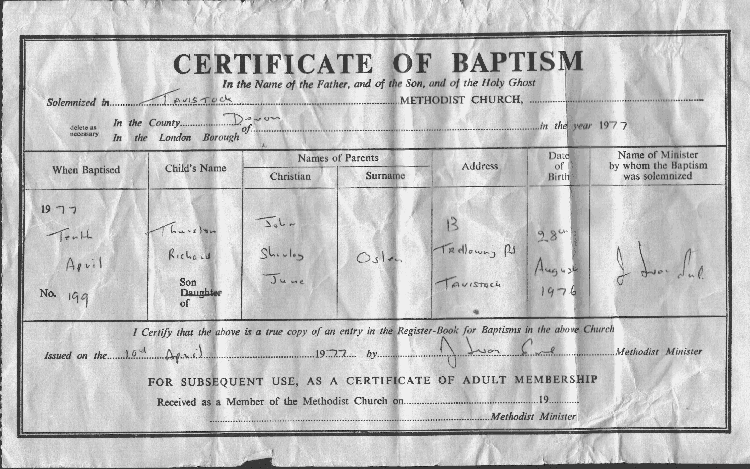 CERTIFICATE OF BAPTISM
In the Name of the Father, and of the Son, and of the Holy Ghost
Solemnized in Tavistock METHODIST CHURCH,
delete as necessary
In the County Devon
In the London Borough of in the year 1977
When Baptised Child's Name Names of Parents Address Date of Birth Name of Minister by whom the Baptism was solemnized
Christian Surname
1977 Thurston John 13 28th
Tenth Richard Shirley Oslen Rd August J Ivor
April Son June Tavistock 1976
No. 199 Daughter
of
I Certify that the above is a true copy of an entry in the Register-Book for Baptisms in the above Church
Issued on the 10th April 1977 by J Ivor Methodist Minister
FOR SUBSEQUENT USE, AS A CERTIFICATE OF ADULT MEMBERSHIP
Received as a Member of the Methodist Church on 19
Methodist Minister